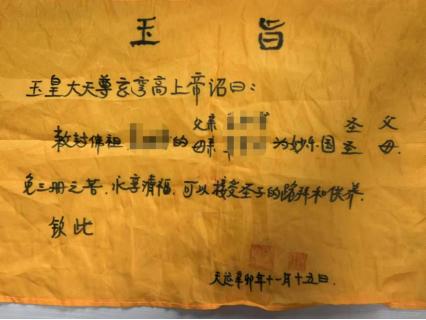 玉旨
玉皇大天尊玄穹高上帝诏曰：
父亲 圣父
敕封佛祖 的 母亲 为妙乐国 圣母.
免三册之苦，永享清福，可以接受圣子的跪拜和供养。
钦此
天运辛卯年十一月十五日.